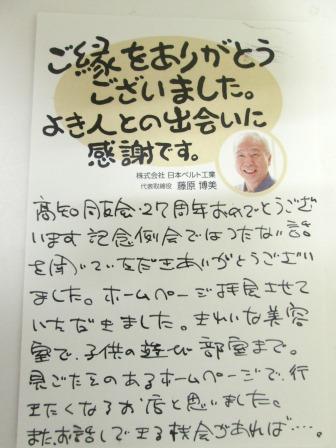 ご縁をありがとう
ございました。
よき人との出会いに
感謝です。
株式会社 日本ベルト工業
代表取締役 藤原 博美
高知同友会・27周年おめでとうござ
います 記念例会ではつたない話
を聞いていただきありがとうござい
ました。ホームページ拝見させて
いただきました。きれいな美容
室で、子供の遊び部屋まで。
見ごたえのあるホームページで、行
きたくなるお店と思いました。
また、お話しできる機会があれば……。